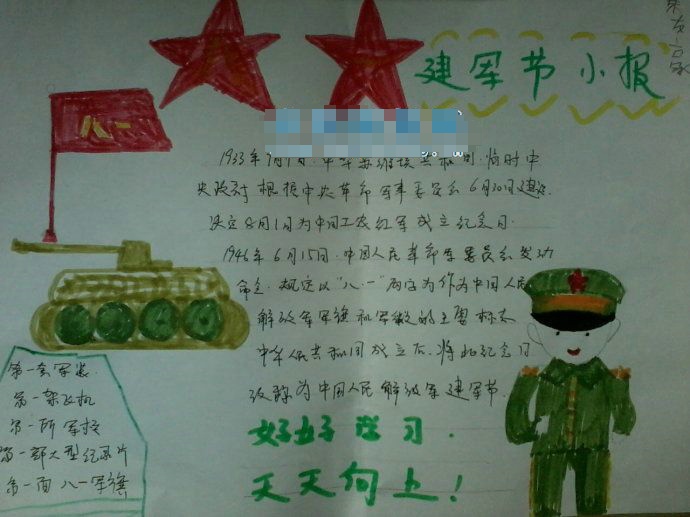 建军节小报
八一
1933年7月1日.中华苏维埃共和国.临时中
央政府根据中央革命军事委员会6月30日建议.
决定8月1日为中国工农红军成立纪念日.
1946年6月15日.中国人民革命军委员会发动
命令.规定以"八.一"两字为作为中国人民
解放军军旗和军徽的主要标志
中华人民共和国成立后.将此纪念日
改称为中国人民解放军建军节.
第一套军装
第一架飞机
第一所军校
第一部大型纪录片
第一面八一军旗
好好学习.
天天向上！